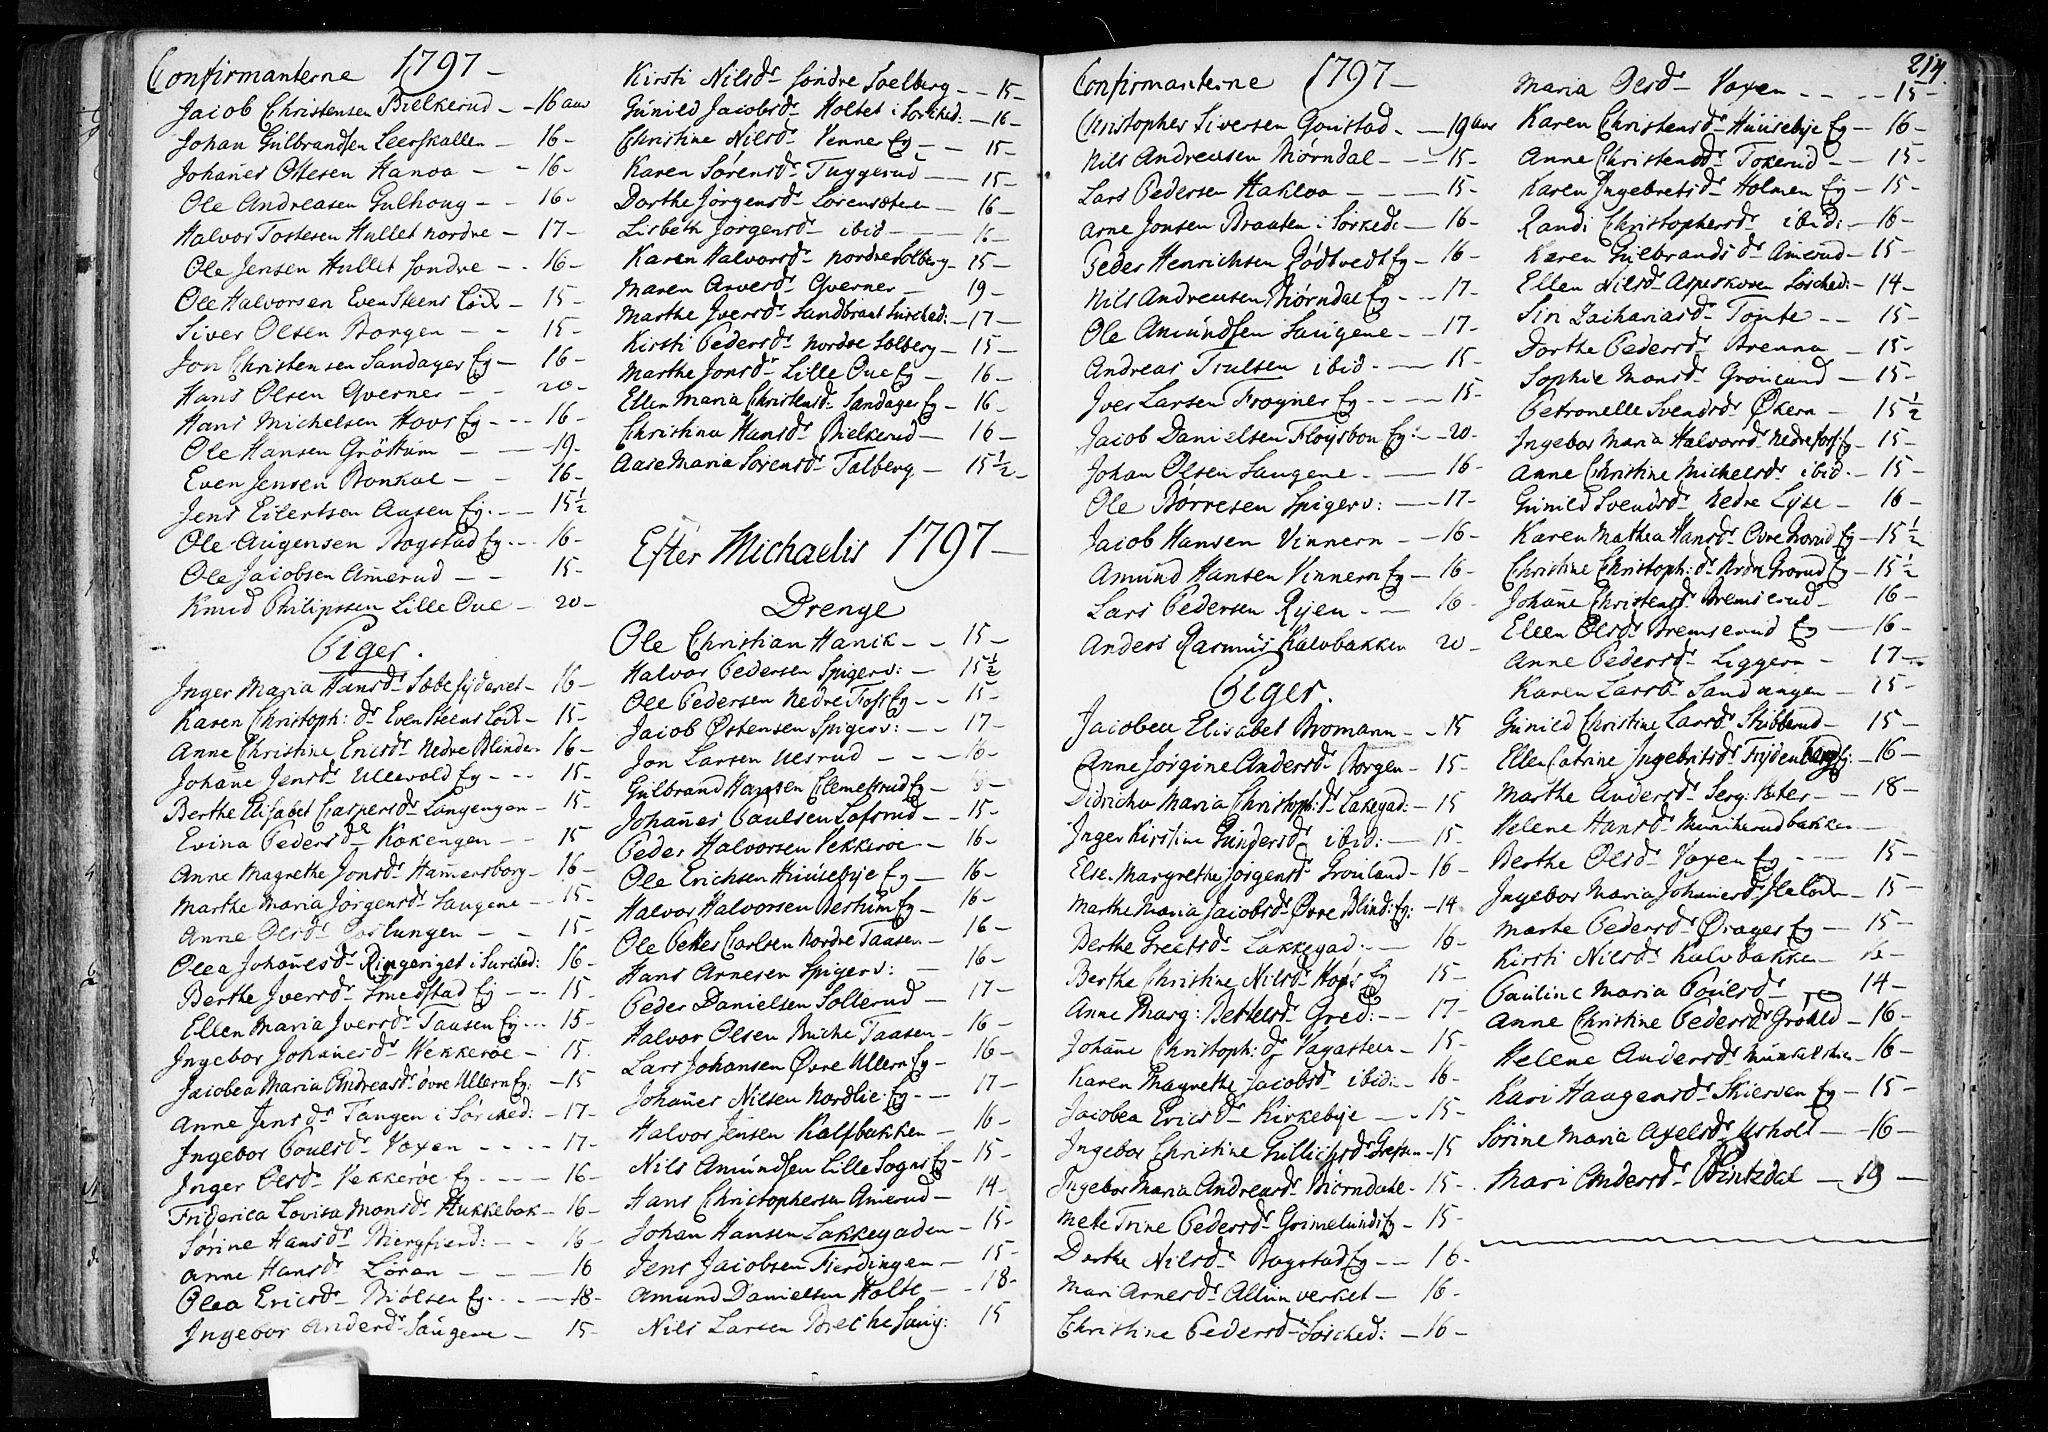 Confirmanterne 1797 -
Jacob Christensen Bielkerud - - 16 aar
Johan Gulbrandsen Leerskallen - 16 -
Johañes Ottesen Hanoa - - 16 -
Ole Andreasen Gulhoug - - 16 -
Halvor Tostesen Hullet nordre - 17 -
Ole Jensen Hullet søndre - - 16 -
Ole Halvorsen Even Steens Lød - 15 -
Siver Olsen Borgen - - 15 -
Jon Christensen Sandager Eg - 16 -
Hans Olsen Qverner - - 20 -
Hans Michelsen Hovs Eg - - - 16 -
Ole Hansen Gröttum - - 19 -
Even Jensen Bonkal - - 16 -
Jens Eilertsen Aasen Eg. - - 15 1/2
Ole Augensen Bogstad Eg - - 16 -
Ole Jacobsen Amerud - - 15 -
Knud Philipssen Lille Oue - 20 -
Piger.
Inger Maria Hansdr Sæbesyderiet - 16 -
Karen Christoph: dr Even Steens Lød - 15 -
Anne Christine Ericsdr Nedre Blinder 16 -
Johañe Jensdr Ullevold Eg - - - 15 -
Berthe Elisabet Caspersdr Langengen - 15 -
Evina Pedersdr Kokengen - - 15
Anne Magrethe Jonsdr Hamersborg - 16 -
Marthe Maria Jørgensdr Saugene - - 15 -
Anne Olsdr - - 15 -
Olea Johañesdr Ringeriget i Sørched: 16 -
Berthe Iversdr Smedstad Eg - - 15 -
Ellen Maria Iversdr Taasen Eg - - - 15 -
Ingebor Johañesdr Wekkerøe - 15
Jacobea Maria Andreasdr øvre Ullern Eg: - 15
Anne Jensdr Tangen i Sørched: - 17 -
Ingebor Poulsdr Voxen - - - - 17 -
Inger Olsdr Vekkerøe Eg - - - - 16 -
Friderica Lovisa Monsdr Hukkebak - 16 -
Sørine Hansdr Biergfierd: - - 16 -
Anne Hansdr Løran - - - 16
Olea Ericsdr Biølsen Eg. - - - 18 -
Ingebor Andersdr Saugene - 15 -
Kirsti Nilsdr søndre Soelberg - - 15 -
Gunild Jacobsdr Holtet i Sørched: - 16 -
Christine Nilsdr Venner Eg - - 15 -
Karen Sørensdr Tuggerud - - 15 -
Dorthe Jørgensdr Sørensæteren - 16 -
Lisbeth Jørgensdr ibid - - - 16 -
Karen Halvorsdr nordre Solberg - 15 -
Maren Arnesdr Qverner - 19 -
Marthe Iversdr Sandbraat Sørched: - 17 -
Kirsti Pedersdr Nordre Solberg - 15 -
Marthe Jonsdr Lille Oue Eg - 16 -
Ellen Maria Christensdr Sandager Eg - 16 -
Christina Hansdr Bielkerud - 16 -
Aase Maria Sørensdr Talberg - 15 1/2 -
Efter Michaelis 1797 -
Drenge
Ole Christian Hanik - - 15 -
Halvor Pedersen Spigerv: - 15 1/2
Ole Pedersen Nedre Foss Eg - - 15 -
Jacob Østensen Spigerv: - - 17 -
Jon Larsen Ulsrud - - - 16 -
Gulbrand Hansen Clemetsrud Eg -
Johañes Paulsen Løfsrud - - 15 -
Peder Halvorsen Vekkerøe - 16 -
Ole Erichsen Huusebye Eg - 16 -
Halvor Halvorsen Bestum Eg - 16 -
Ole Petter Carlsen Nordre Taasen - 16 -
Hans Arnesen Spigerv: - 16 -
Peder Danielsen Sollerud - 17 -
Halvor Olsen Biche Taasen - 16 -
Lars Johansen Øvre Ullern Eg - 16 -
Johañes Nilsen Nordlie Eg - - 17 -
Halvor Jensen Kalfbakken - 16 -
Nils Amundsen Lille Sogns Eg - 15 -
Hans Christophersen Amerud - 14 -
Johan Hansen Lakkegaden - 15 -
Jens Jacobsen Fierdingen - 15 -
Amund Danielsen Holte - - 18 -
Nils Larsen 15
Confirmanterne 1797 -
Christopher Siversen Goustad - - 19 aar
Nils Andreasen Biørndal - - - 15 -
Lars Pedersen Hakloa - - - 15 -
Arne Jonsen Braaten i Sørked: - 16 -
Peder Henrichsen Rødtvedt Eg - 16 -
Nils Andreasen Biørndal Eg - - - 17 -
Ole Amundsen Saugene - - 17 -
Andreas Trulsen ibid - - 15 -
Iver Larsen Frogner Eg - - - - 15 -
Jacob Danielsen Fløysbon Eg: - - 20 -
Johan Olsen Saugene - - 16 -
Ole Børresen Spigerv: - - 17 -
Jacob Hansen Vinnern - - 16 -
Amund Hansen Vinnern Eg - 16 -
Lars Pedersen Ryen - - 16 -
Anders Rasmus Kalvbakken 20 -
Piger.
Jacobea Elisabet Bromann - - 15
Anne Jørgine Andersdr Borgen - 15 -
Didricha Maria Christoph: dr Lakegad: - 15
Inger Kirstine Gundersdr ibid: - 15 -
Else Margrethe Jørgensdr Grønland - 16 -
Marthe Maria Jacobsdr Øvre Blind: Eg: - 14
Berthe Greersdr Lakkegad: - 16 -
Berthe Christine Nilsdr Hovs Eg 15 -
Anne Marg: Bettelsdr Græd: - - 17 -
Johañe Christoph: dr Vagasteen - 15 -
Karen Magrethe Jacobsdr ibid: - 16 -
Jacobea Ericsdr Kirkebye - - 15 -
Ingebor Christine Gullichsdr - 15
Ingebor Maria Andreasdr Biørndahl - 15 -
Mette Trine Pedersdr Grimelunds Eg - 15 -
Dorthe Nilsdr Bogstad Eg - - 16 -
Mari Arnesdr Allunverket - 16 -
Christine Pedersdr Sørched: - 16 -
214.
Maria Olsdr Voxen - - - - 15 -
Karen Christensdr Huusebye Eg - 16 -
Anne Christensdr Tokerud - - 15 -
Karen Ingebretsdr Holmen Eg - 15 -
Randi Christophersdr ibid: - 16 -
Karen Gulbrandsdr Amerud - 15 -
Ellen Nilsdr Aspeskoven Sørched: - 14 -
Siri Zachariasdr Tonte - - 15 -
Dorthe Pedersdr Brenna - 15 -
Sophie Monsdr Grønland - 15 -
Petronelle Svendsdr Økern - 15 1/2
Ingebor Maria Halvorsdr Nedre foss Eg - 15 -
Anne Christine Michelsdr ibid - 15 -
Gunild Svendsdr Nedre Lyse - 16 -
Karen Mathea Hansdr Øvre Grorud Eg - 15 1/2
Christine Christoph: dr Nrdn Grorud Eg - 15 1/2
Johañe Christensdr Bremserud - 16 -
Ellen Olsdr Bremserud Eg - 16 -
Anne Pedersdr Liggern - 17 -
Karen Larsdr Sandungen - 15 -
Gunild Christine Larsdr Stubberud - 15 -
Ellen Catrine Ingebritsdr Frydenberg Eg: - 16 -
Marthe Andersdr Serg: Peter - - 18 -
Helene Hansdr Munkerudbakken -
Berthe Olsdr Voxen Eg - - - 15 -
Ingebor Maria Johañesdr - 15 -
Marte Pedersdr Ørager Eg - 15 -
Kirsti Nilsdr Kalvbakken - 16 -
Pauline Maria Poulsdr - 14 -
Anne Christine Pedersdr - 16 -
Helene Andersdr - 16 -
Kari Haagensdr Skierven Eg - 15 -
Sørine Maria Axelsdr Usholt - - 16 -
Mari Andersdr Printzdal - 19 -